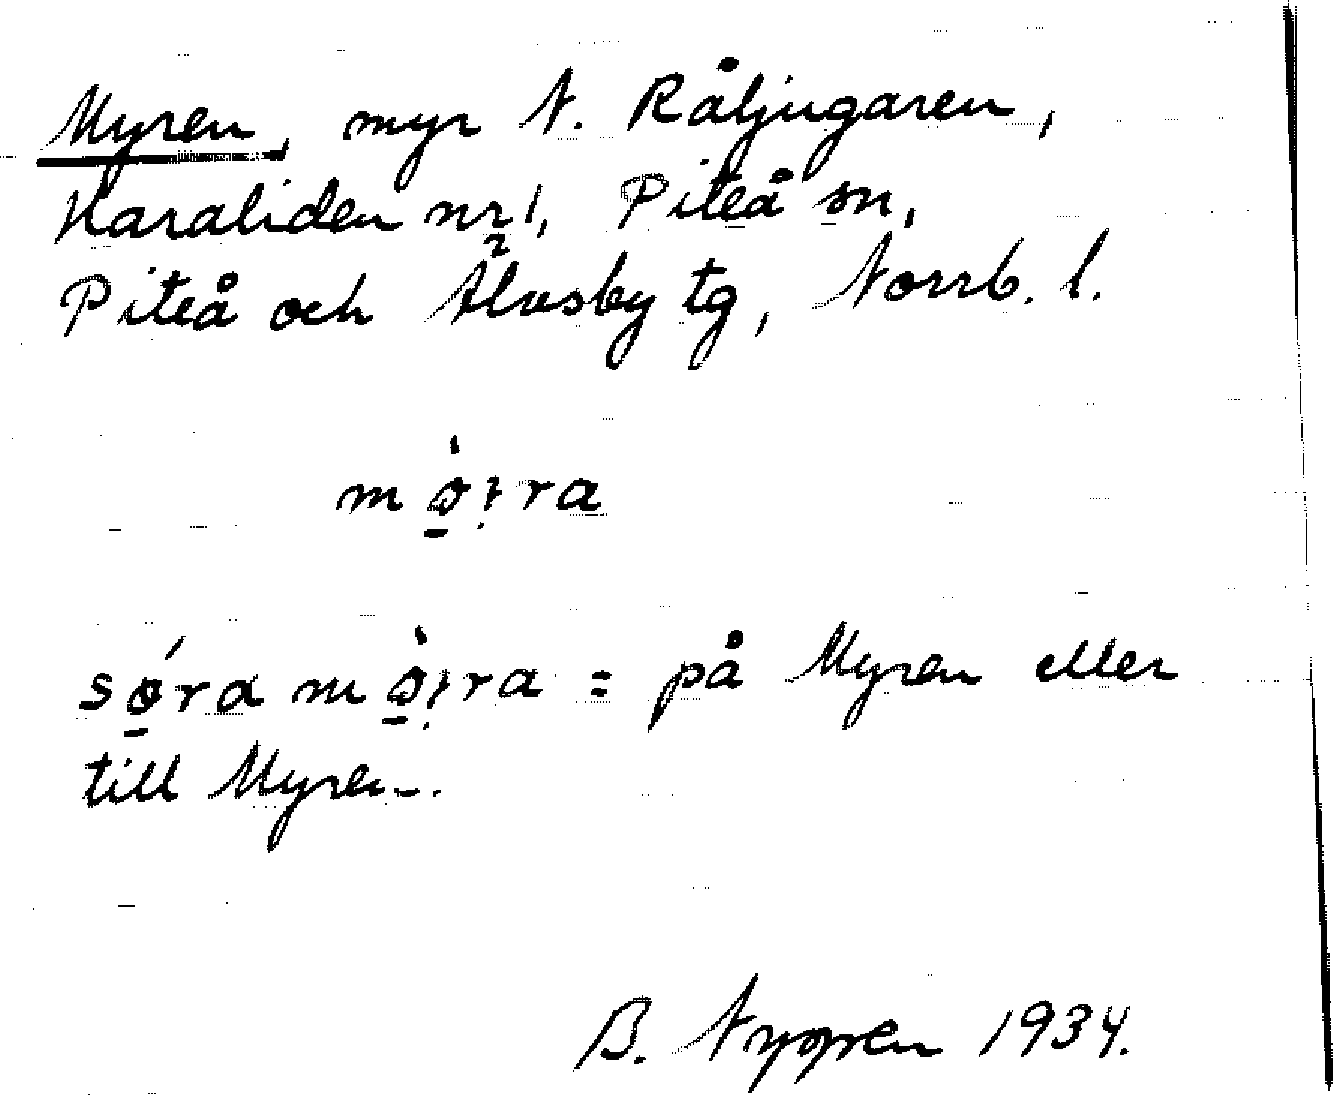 Myren, myr N. Råljugaren,
Haraliden nr 1, Piteå sn,
Piteå och Älvsby tg, Norrb. l.
söra = på Myren eller
till Myren.
B. 1934.